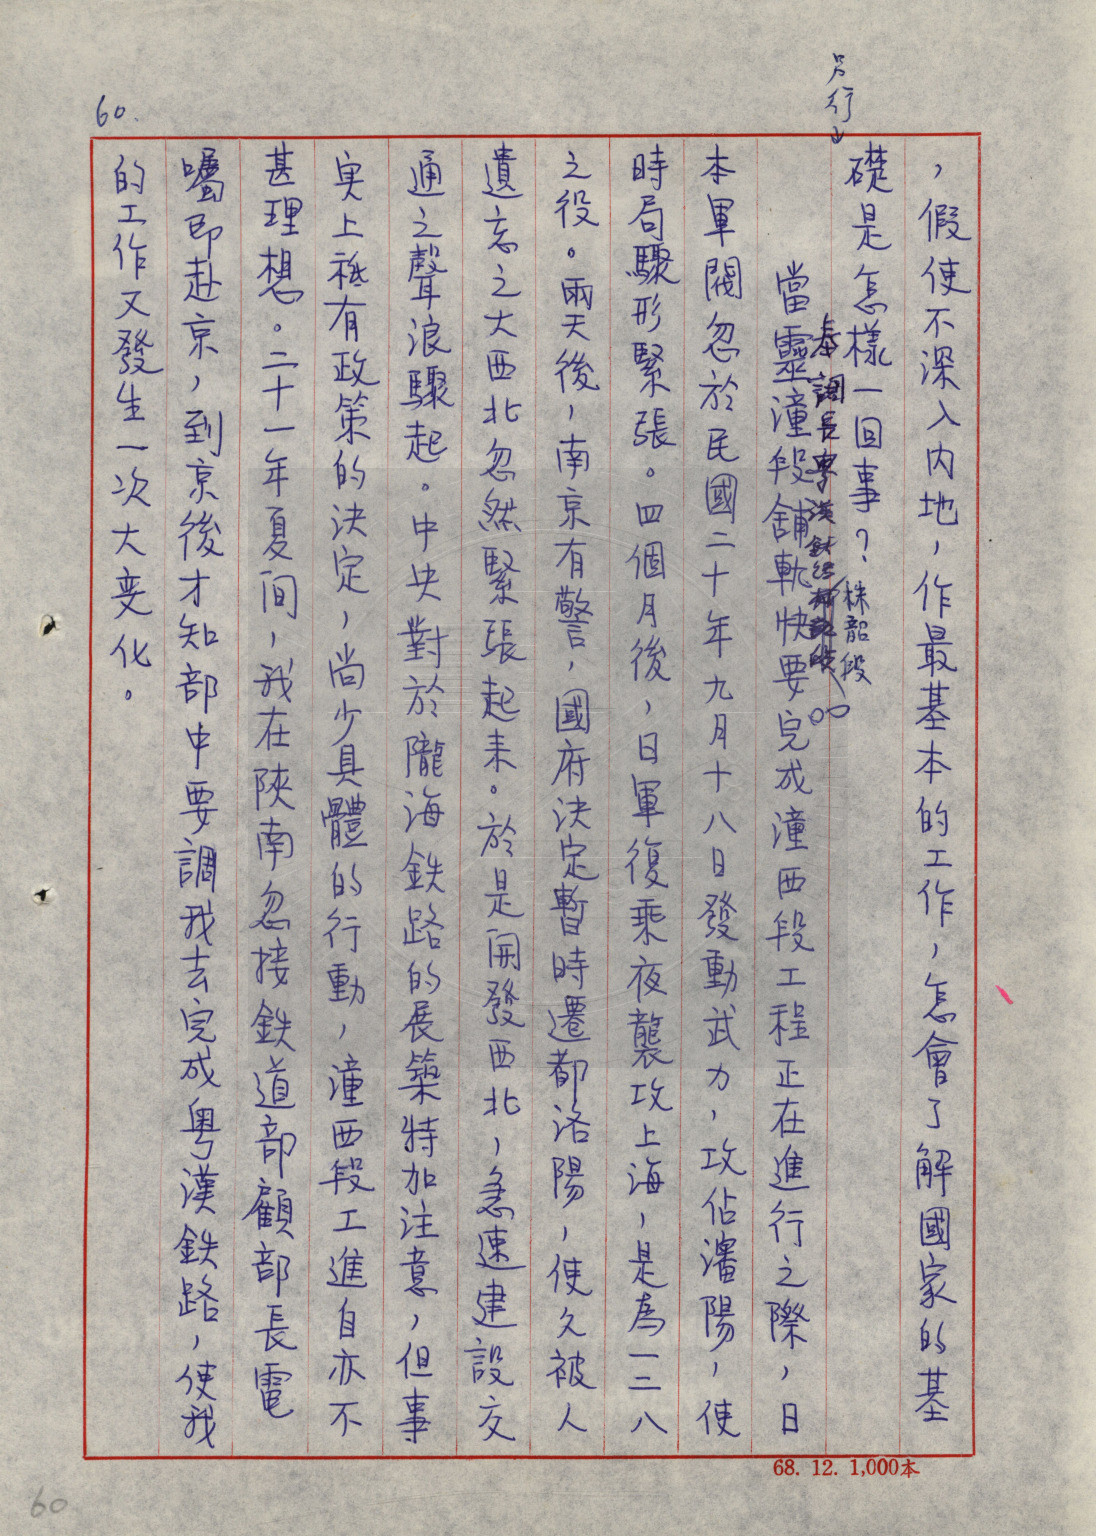 60.
另行
，假使不深入内地，作最基本的工作，怎會了解國家的基
礎是怎樣一回事？
奉調長粵漢鉄路株韶段
株韶段
當靈潼段舖軌快要完成潼西段工程正在進行之際，日
本軍閥忽於民國二十年九月十八日發動武力，攻佔瀋陽，使
時局驟形緊張。四個月後，日軍復乘夜襲攻上海，是為一二八
之役。兩天後，南京有警，國府決定暫時遷都洛陽，使久被人
遺忘之大西北忽然緊張起来。於是開發西北，急速建設交
通之聲浪驟起。中央對於隴海鉄路的展築特加注意，但事
実上祗有政策的決定，尚少具體的行動，潼西段工進自亦不
甚理想。二十一年夏间，我在陝南忽接鉄道部顧部長電
囑即赴京，到京後才知部中要調我去完成粤漢鉄路，使我
的工作又發生一次大变化。
68. 12. 1,000本
60